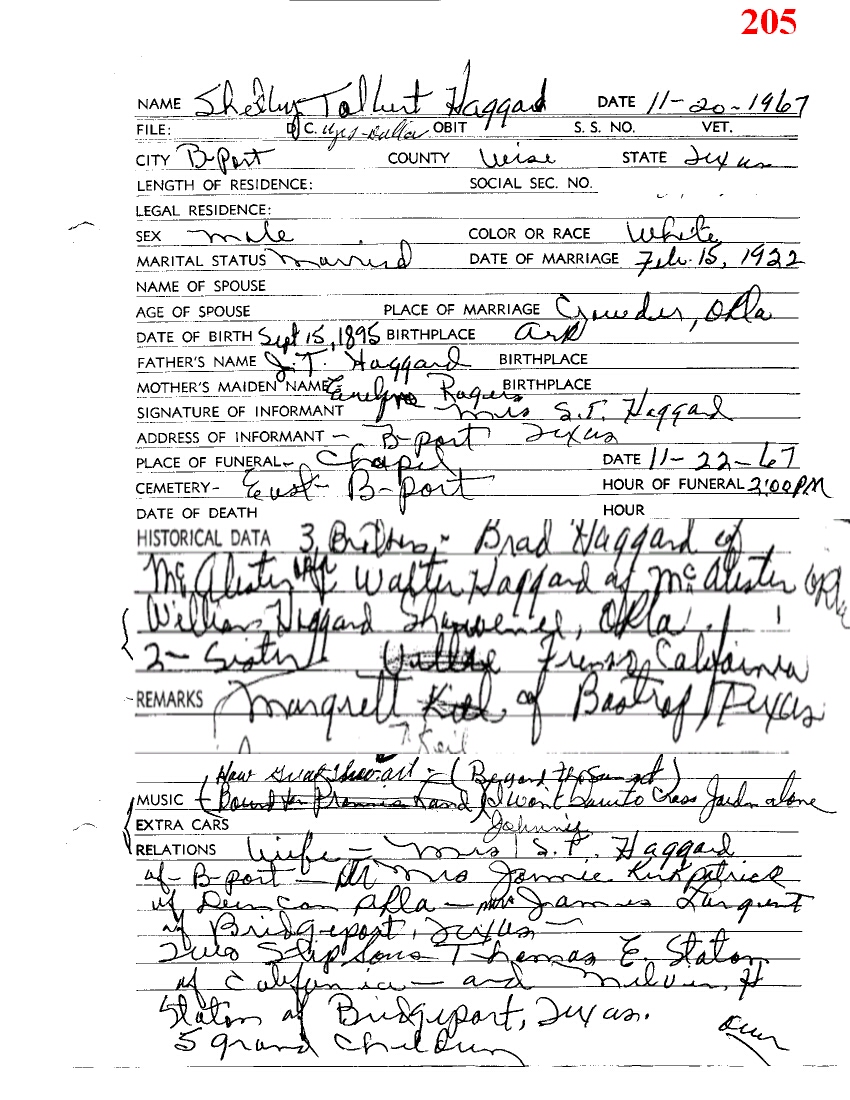 205
NAME Shelby Talbert Haggard DATE 11-20-1967
FILE: D.C. OBIT S. S. NO. VET.
CITY B-Port COUNTY Wise STATE Texas
LENGTH OF RESIDENCE: SOCIAL SEC. NO.
LEGAL RESIDENCE:
SEX Male COLOR OR RACE White
MARITAL STATUS Married DATE OF MARRIAGE Feb. 15, 1922
NAME OF SPOUSE
AGE OF SPOUSE PLACE OF MARRIAGE Crowder, Okla
DATE OF BIRTH Sept 15, 1895 BIRTHPLACE Ark
FATHER'S NAME J.T. Haggard BIRTHPLACE
MOTHER'S MAIDEN NAME Rogers BIRTHPLACE
SIGNATURE OF INFORMANT Mrs S.T. Haggard
ADDRESS OF INFORMANT - B-port Texas
PLACE OF FUNERAL- Chapel DATE 11-22-67
CEMETERY- East B-port HOUR OF FUNERAL 2:00PM
DATE OF DEATH HOUR
HISTORICAL DATA 3 Brothers - Brad Haggard of
McAlister Walter Haggard of McAlister Okla
William Haggard Okla
2 - Sister Fresno, California
REMARKS Margrett of Bastrop Texas
Keil
How Great Thou art - (Beyond the Sunset)
MUSIC I Wont Have to Cross Jordan alone
EXTRA CARS Johnnie
RELATIONS Wife - Mrs S.T. Haggard
of - B-port - Mrs Jimmie Kirkpatrick
of Duncan Okla - Mrs James Sargent
of Bridgeport, Texas -
Two Step Sons Thomas E. Staton
of California - and Melvin H
Staton of Bridgeport, Texas.
5 grand Children